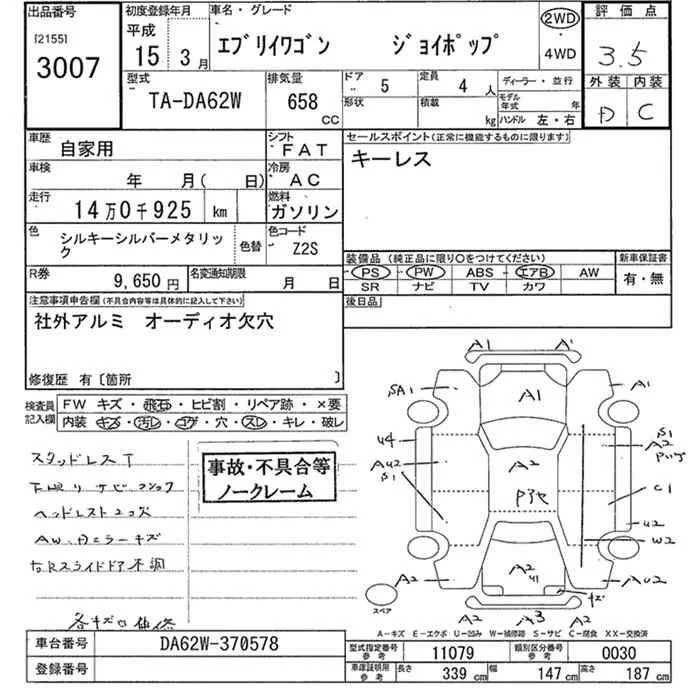 出品番号
[2155]
3007
初度登録年月
平成
15 3月
車名・グレード
エブリイワゴン ジョイポップ
2WD
・
4WD
評価点
3.5
外装 内装
D C
型式
TA-DA62W
排気量
658
CC
ドア
5
定員
4人
形状
積載
kg
ディーラー・並行
モデル年式 年
ハンドル 左・右
車歴
自家用
シフト
FAT
車検
年 月( 日)
冷房
AC
走行
14万0千925 km
燃料
ガソリン
色
シルキーシルバーメタリック
色替
色コード
Z2S
R券
9,650円
名変通知期限
月 日
セールスポイント(正常に機能するものに限ります)
キーレス
装備品(純正品に限り○をつけてください)
PS PW ABS エアB AW
SR ナビ TV カワ
新車保証書
有・無
後日品
注意事項申告欄(不具合内容等は具体的に記入して下さい)
社外アルミ オーディオ欠穴
修復歴 有〔箇所 〕
検査員記入欄
FW キズ・飛石・ヒビ割・リペア跡・×要
内装 キズ・汚レ・コゲ・穴・スレ・キレ・破レ
スタッドレスT
下廻りサビ
ヘッドレスト2コ欠
AW、ミラーキズ
右Rスライドドア不調
各キズ凸補修
事故・不具合等
ノークレーム
A1 A1
SA1 A1 A1
U4 S1
A2
AU2 A2
S1 C1
U2
W2
A2 A2 U1 AU2
スペア
A2 A3 A2
A-キズ E-エクボ U-凹み W-補修跡 S-サビ C-腐食 XX-交換済
車台番号 DA62W-370578
登録番号
型式指定番号参考 11079 類別区分番号参考 0030
車庫証明用参考 長さ 339cm 幅 147cm 高さ 187cm